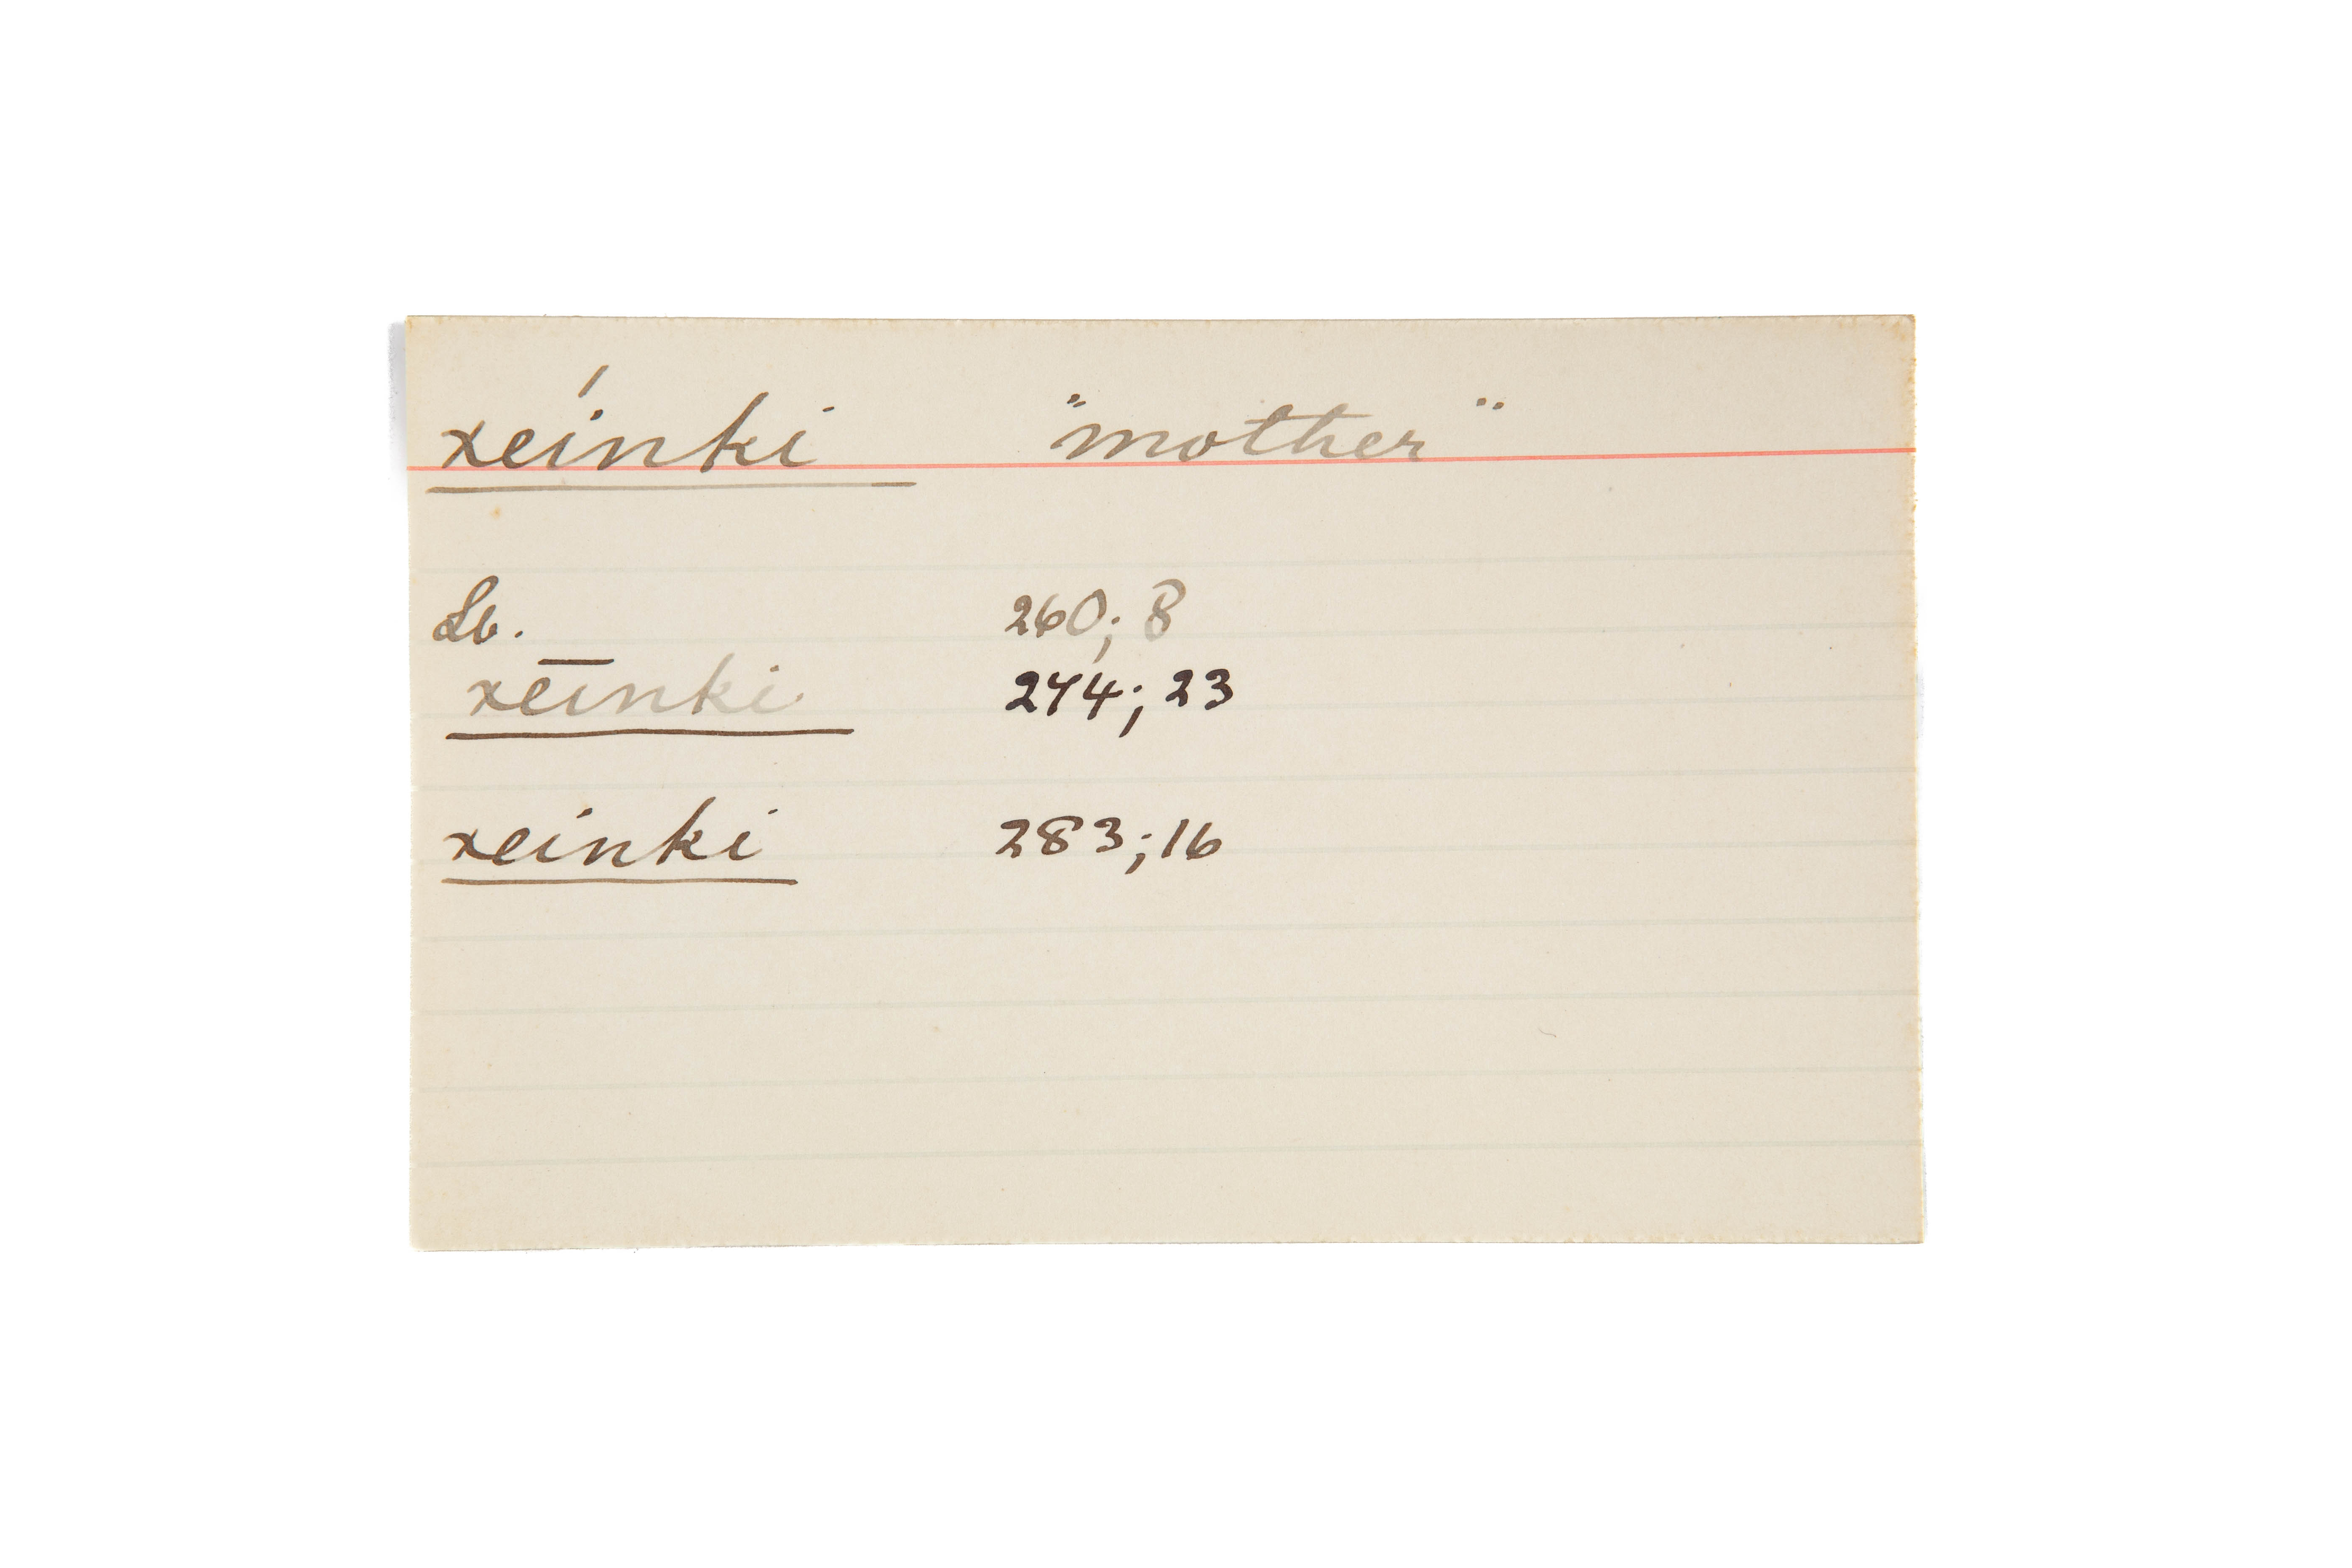 xeínki "mother"
Lb. 260; 8
xeīnki 274; 23
xeinki 283; 16